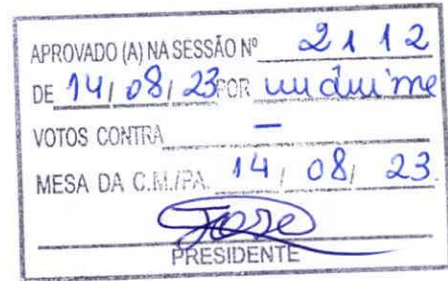 APROVADO (A) NA SESSÃO Nº 2112
DE 14/08/23 POR unânime
VOTOS CONTRA —
MESA DA C.M./PA. 14/08/23.
PRESIDENTE